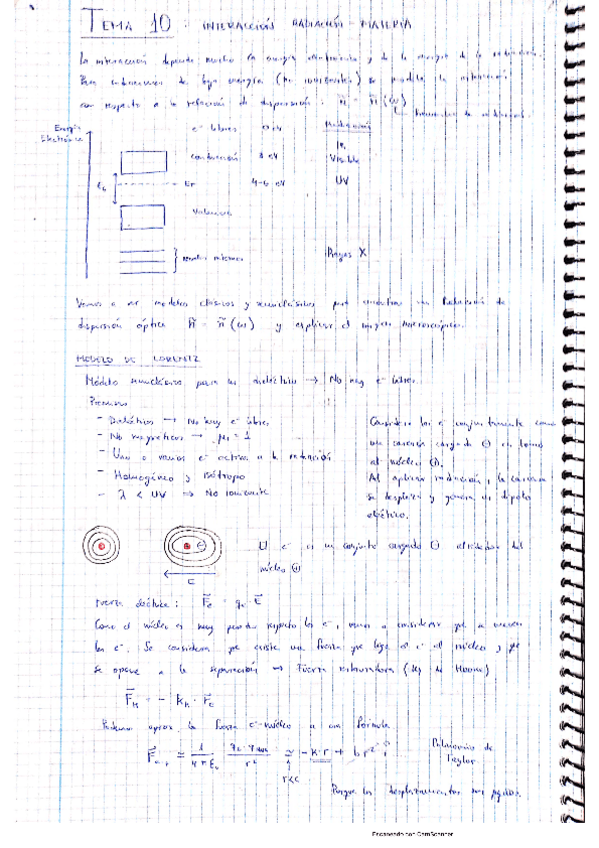 TEMA 10: INTERACCIÓN RADIACIÓN-MATERIA
La interacción depende mucho la energía electrónica y de la energía de la radiación.
Para radiaciones de baja energía (no ionizantes) se modela la
con respecto a la relación de dispersión: ñ = ñ(ω)
Energía
Electrónica
e⁻ libres 0 eV Radiación
IR
conducción 3 eV Visible
EF 4-6 eV UV
Valencia
Rayos X
Vamos a ver modelos clásicos y semiclásicos para una Relación de
dispersión óptica ñ = ñ(ω) y explicar el origen microscópico.
MODELO DE LORENTZ
Modelo semiclásico para un dieléctrico → No hay e⁻ libres.
- Dieléctrico → No hay e⁻ libres
- No magnéticos → μr = 1
- Uno o varios e⁻ activos a la radiación
- Homogéneo y isótropo
- λ < UV ⇒ No ionizante
Considero los e⁻ conjuntamente como
una carcasa cargada ⊖ en torno
al núcleo ⊕.
Al aplicar radiación, la carcasa
se desplaza y genera un dipolo
eléctrico.
El e⁻ es un conjunto cargado ⊖ alrededor del
núcleo ⊕
Fuerza eléctrica: F⃗e = qe E⃗
Como el núcleo es muy pesado respecto los e⁻, vamos a considerar que se mueven
los e⁻. Se considera que existe una fuerza que liga el e⁻ al núcleo y que
se opone a la separación → Fuerza restauradora (ley de Hooke)
F⃗R = - kR · r⃗e
Podemos aprox. la fuerza e⁻-núcleo a una fórmula
≃ 1/4πε₀ ≃ -k·r + br²
r<<
Polinomio de
Taylor
Porque los desplazamientos son pequeños.
Escaneado con CamScanner